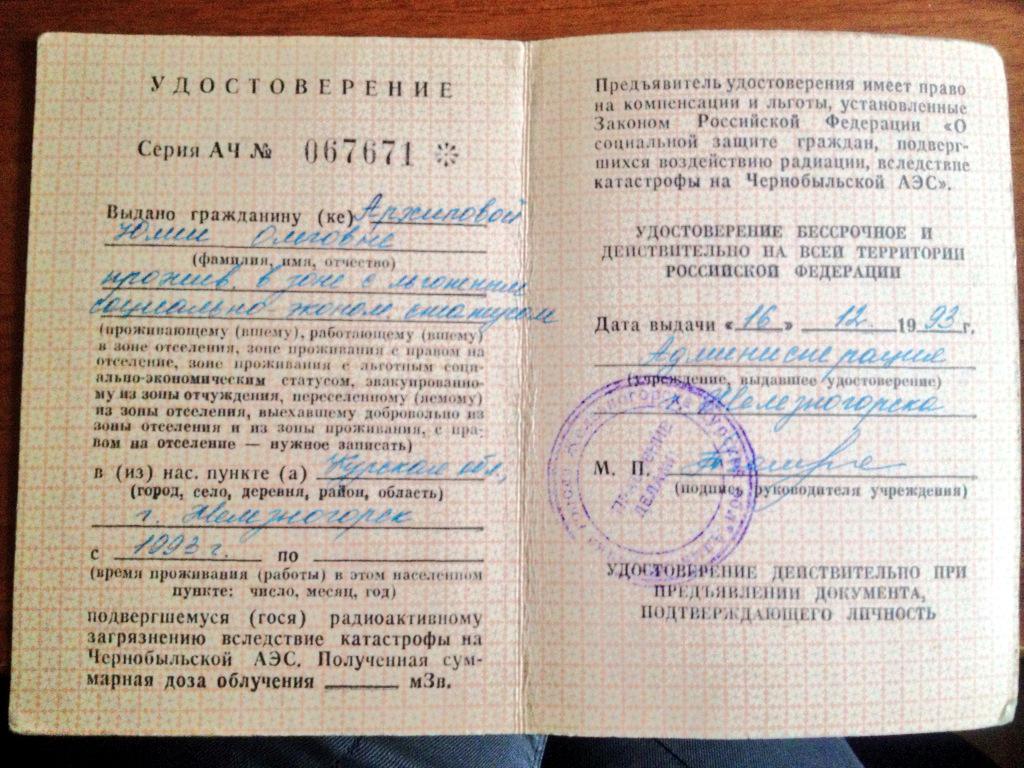 УДОСТОВЕРЕНИЕ
Серия АЧ № 067671
Выдано гражданину (ке) Архиповой
Юлии Ольговне
(фамилия, имя, отчество)
прожив. в зоне с льготным
социально эконом. статусом
(проживающему (вшему), работающему (вшему)
в зоне отселения, зоне проживания с правом на
отселение, зоне проживания с льготным соци-
ально-экономическим статусом, эвакуированно-
му из зоны отчуждения, переселенному (яемому)
из зоны отселения, выехавшему добровольно из
зоны отселения и из зоны проживания, с пра-
вом на отселение — нужное записать)
в (из) нас. пункте (а) Курская обл,
(город, село, деревня, район, область)
г. Железногорск
с 1993 г. по
(время проживания (работы) в этом населенном
пункте: число, месяц, год)
подвергшемуся (гося) радиоактивному
загрязнению вследствие катастрофы на
Чернобыльской АЭС. Полученная сум-
марная доза облучения мЗв.
Предъявитель удостоверения имеет право
на компенсации и льготы, установленные
Законом Российской Федерации «О
социальной защите граждан, подверг-
шихся воздействию радиации, вследствие
катастрофы на Чернобыльской АЭС».
УДОСТОВЕРЕНИЕ БЕССРОЧНОЕ И
ДЕЙСТВИТЕЛЬНО НА ВСЕЙ ТЕРРИТОРИИ
РОССИЙСКОЙ ФЕДЕРАЦИИ
Дата выдачи «16» 12. 1993 г.
Администрация
(учреждение, выдавшее удостоверение)
г. Железногорска
М. П.
(подпись руководителя учреждения)
УДОСТОВЕРЕНИЕ ДЕЙСТВИТЕЛЬНО ПРИ
ПРЕДЪЯВЛЕНИИ ДОКУМЕНТА,
ПОДТВЕРЖДАЮЩЕГО ЛИЧНОСТЬ